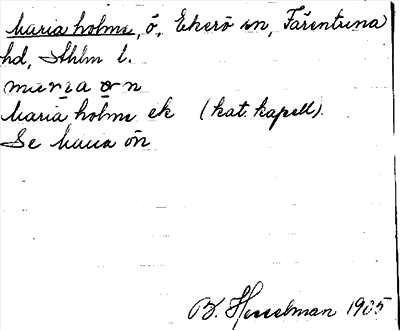 Maria holme, ö, Ekerö sn, Färentuna
hd, Sthlm l.
maria ön
Maria holme ek (kat. kapell).
Se Maria ön
B. Hesselman 1905